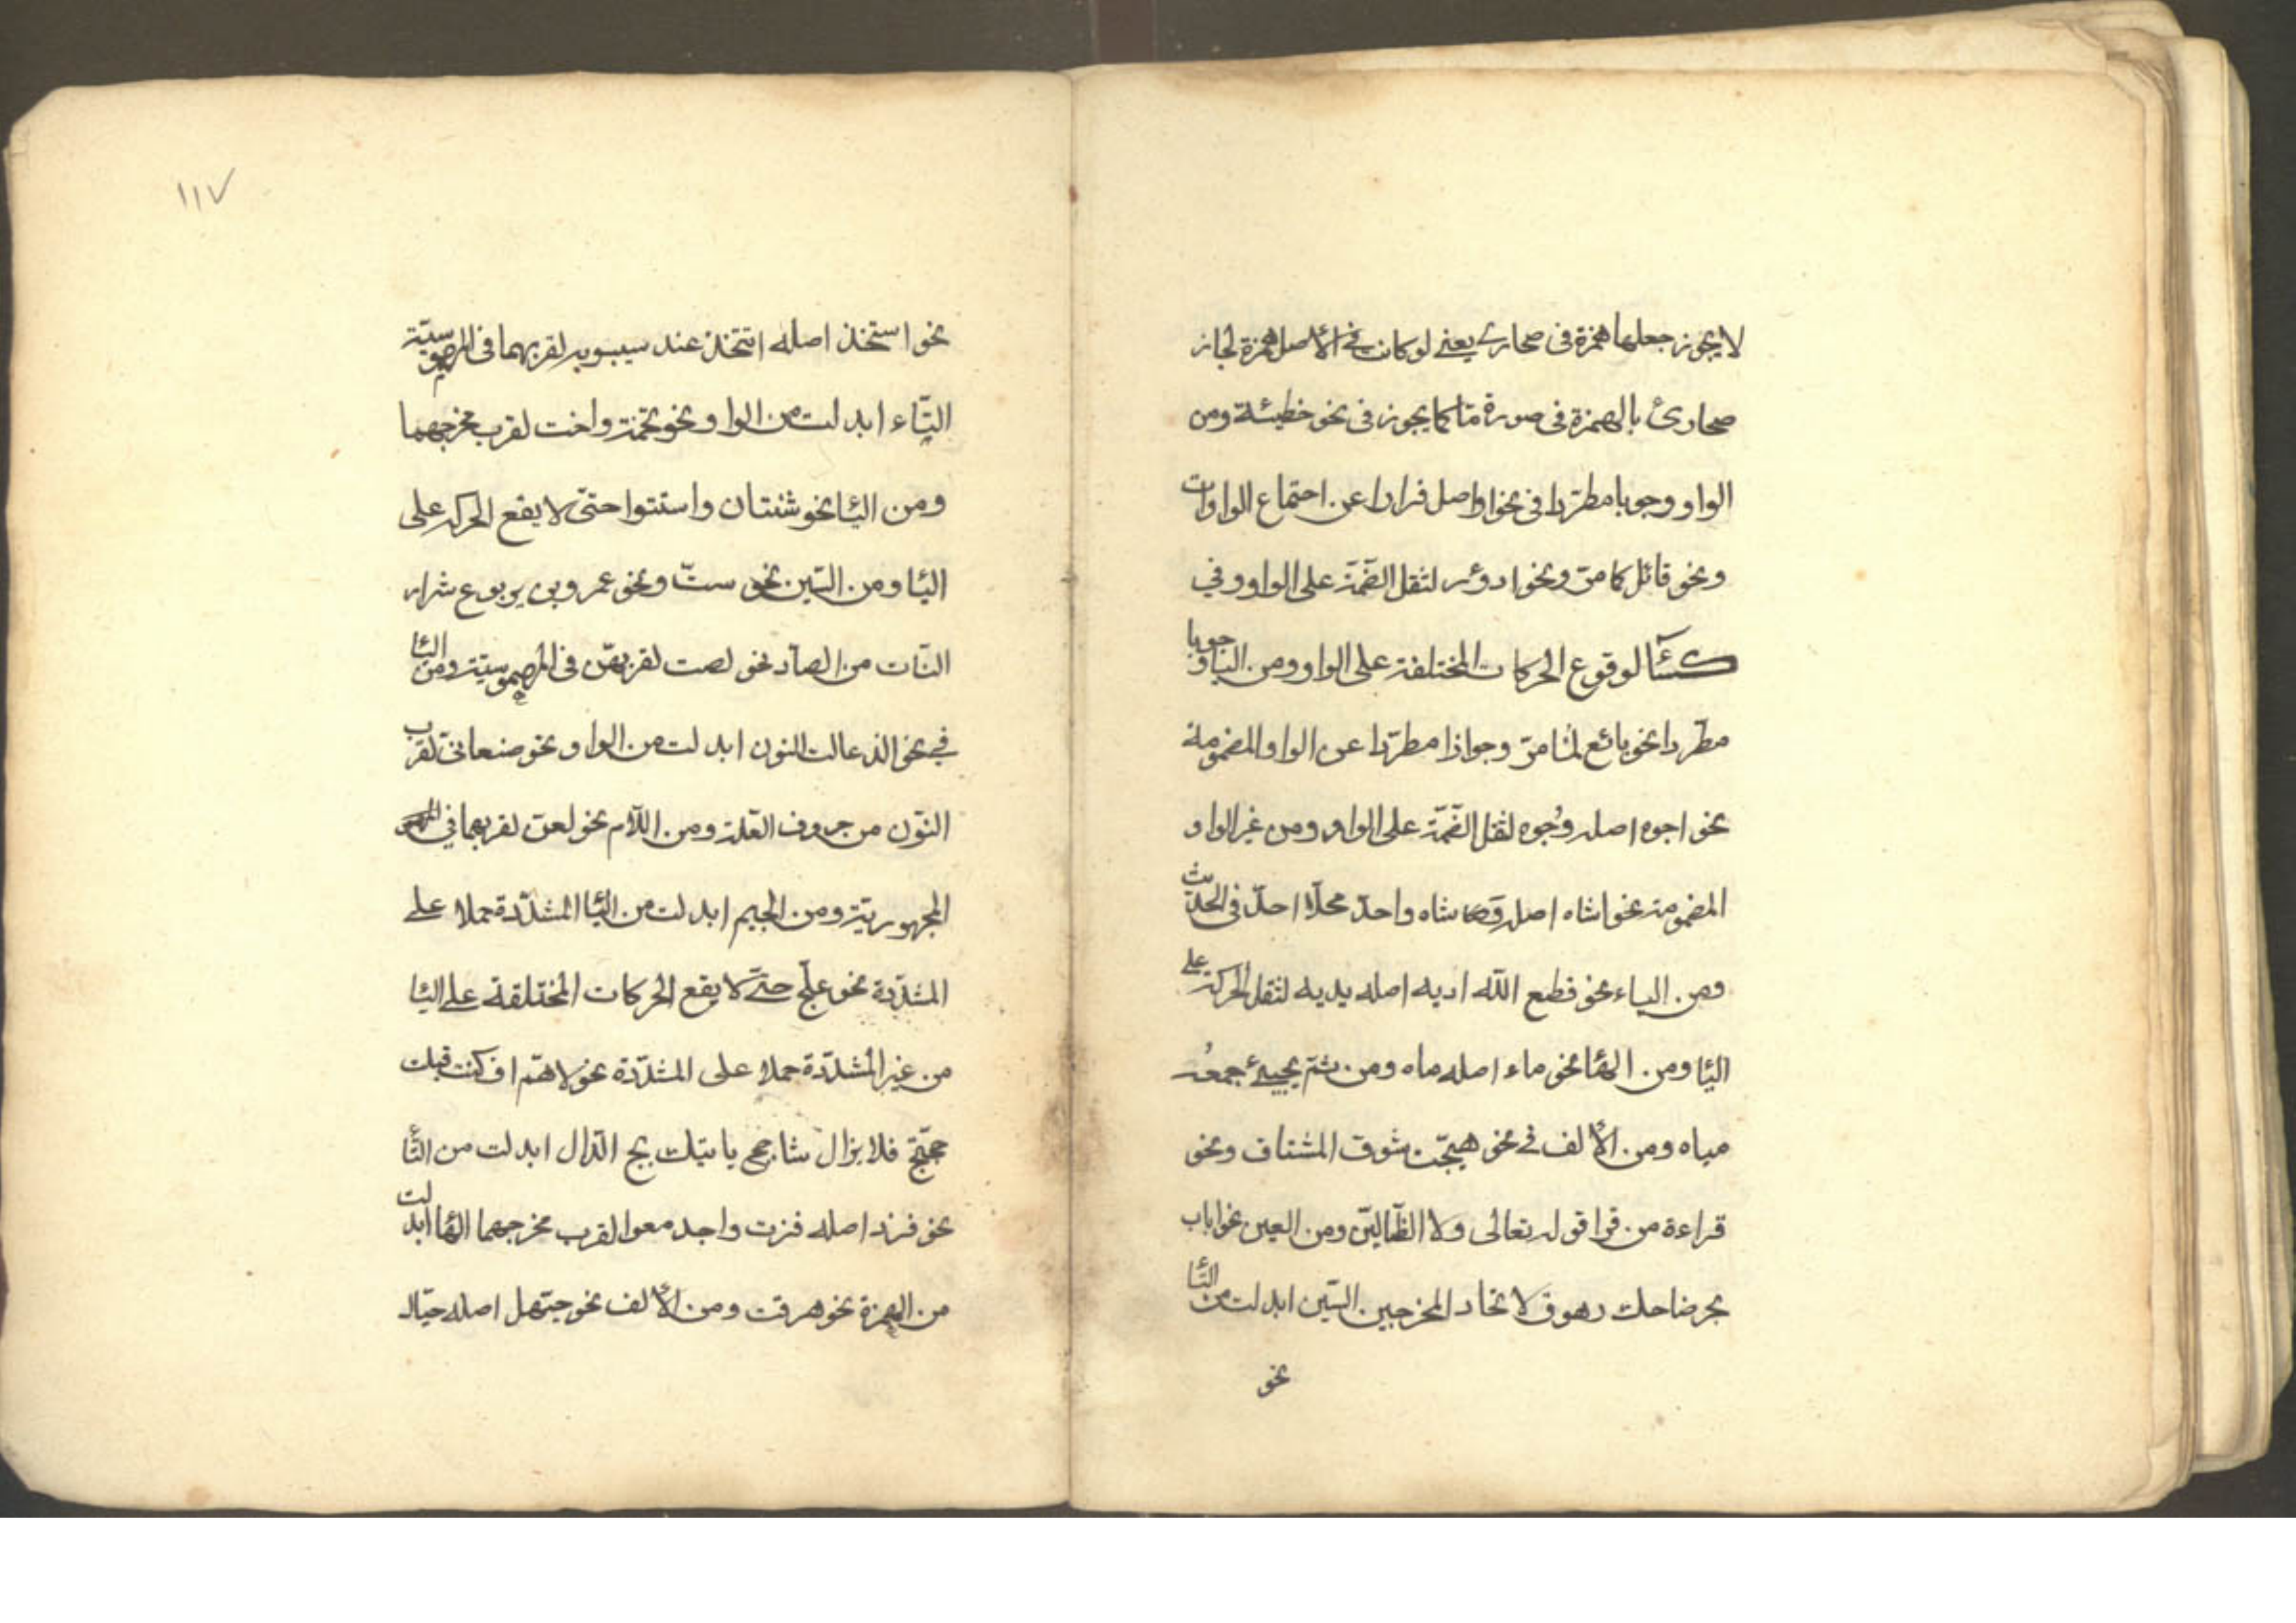 لا يجوز جعلها همزة فى صحارى يعنى لو كان فى الأصل همزة لجاز
صحارئ بالهمزة فى صورة ما كما يجوز فى نحو خطيئة ومن
الواو وجوبا مطردا فى نحو اواصل فرارا عن اجتماع الواوات
ونحو قائل كما مرّ ونحو ادؤر لثقل الضمّة على الواو وفي
كسآء لوقوع الحركات المختلفة على الواو ومن اليا وجوبا
مطّردا نحو بائع لما مرّ وجوازا مطرّدا عن الواو المضمومة
نحو اجوه اصله وُجوه لثقل الضّمّة على الواو ومن غير الواو
المضمومة نحو اشاه اصله وشاه واحدّ محلّا احدّ فى الحديث
ومن الياء نحو قطع اللّه اديه اصله يديه لثقل الحركة على
اليا ومن الها نحو ماء اصله ماه ومن ثمّ يجيئ جمعُه
مياه ومن الألف في نحو هيّجت شوق المشتاف ونحو
قراءة من قرا قوله تعالى ولا الظّالّين ومن العين نحو اباب
بحر ضاحك رهوق لاتخاد المخرجين السّين ابدلت من التّا
نحو
١١٧
نحو استخذ اصله اتتخذ عند سيبويه لقربهما فى المهموسيّة
التّاء ابدلت من الواو نحو تخمة واخت لقرب مخرجهما
ومن اليا نحو ثنتان واسنتوا حتىّ لا يقع الحركه على
اليا ومن السّين نحو ستّ ونحو عمرو بن يربوع شرار
النّات من الصاد نحو لصت لقربهنّ فى المهموسيّة ومن اليا
في نحو الذعالت النون ابدلت من الواو نحو صنعانىّ لقرب
النّون من حروف العّلة ومن اللّام نحو لعن لقربهما في
المجهوريّة ومن الجيم ابدلت من اليا المشدّدة حملا على
المشدّدة نحو علجّ حتّى لا يقع الحركات المختلفة على اليا
من غير المشدّدة حملا على المشدّدة نحو لاهمّ ان كنت قبلت
حجّتج فلا يزال شاحج ياتيك بج الدّال ابدلت من التّا
نحو فزد اصله فزت واجدمعوا لقرب مخرجهما الها ابدلت
من الهمزة نحو هرقت ومن الألف نحو حيّهل اصله حيّالـ